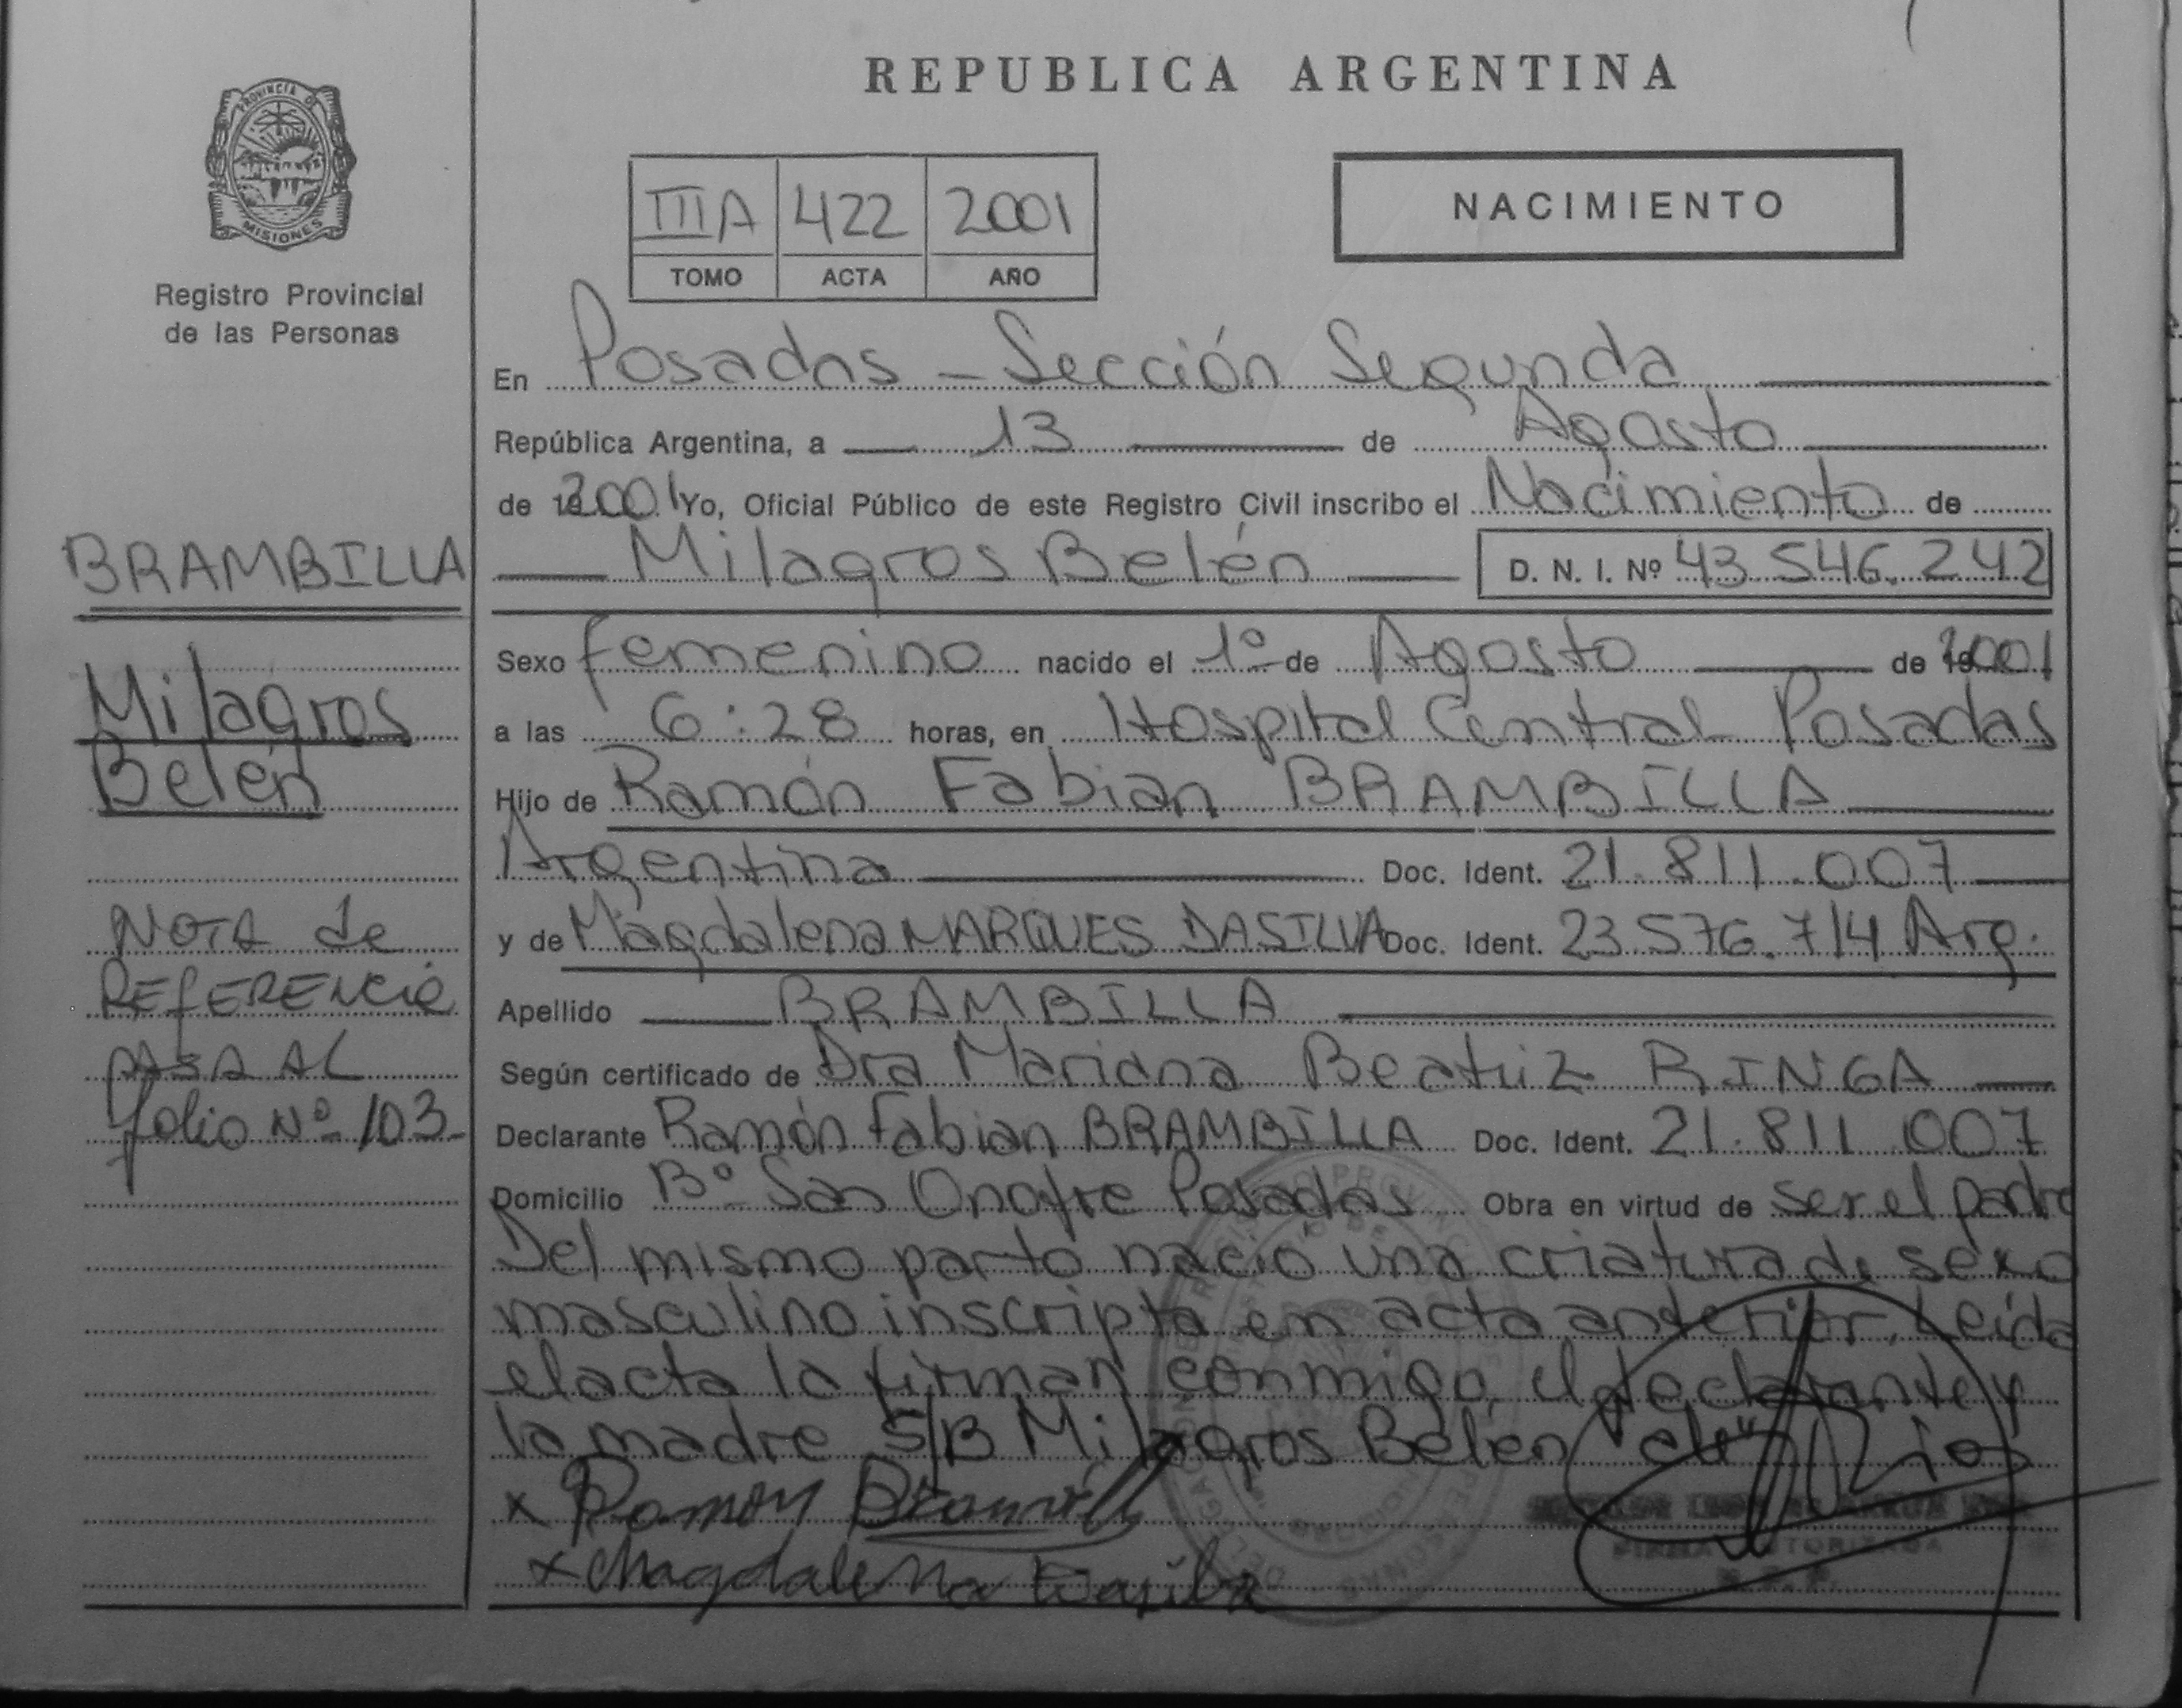 REPUBLICA ARGENTINA
PROVINCIA DE
MISIONES
Registro Provincial
de las Personas
IIIA 422 2001
TOMO ACTA AÑO
NACIMIENTO
En Posadas - Sección Segunda
República Argentina, a 13 de Agosto
de 2001 Yo, Oficial Público de este Registro Civil inscribo el Nacimiento de
Milagros Belén D. N. I. Nº 43.546.242
Sexo femenino nacido el 1º de Agosto de 2001
a las 6:28 horas, en Hospital Central Posadas
Hijo de Ramón Fabian BRAMBILLA
Argentina Doc. Ident. 21.811.007
y de Magdalena MARQUES DASILVA Doc. Ident. 23.576.714 Arg.
Apellido BRAMBILLA
Según certificado de Dra Mariana Beatriz RINGA
Declarante Ramón Fabian BRAMBILLA Doc. Ident. 21.811.007
Domicilio Bº San Onofre Posadas Obra en virtud de ser el padre
Del mismo parto nació una criatura de sexo
masculino inscripta en acta anterior. Leida
el acta la firman conmigo, el declarante y
la madre S/B Milagros Belén
x Ramon
x Magdalena Dasilva
FIRMA AUTORIZADA
BRAMBILLA
Milagros
Belén
NOTA de
REFERENCIA
PASA AL
folio Nº 103